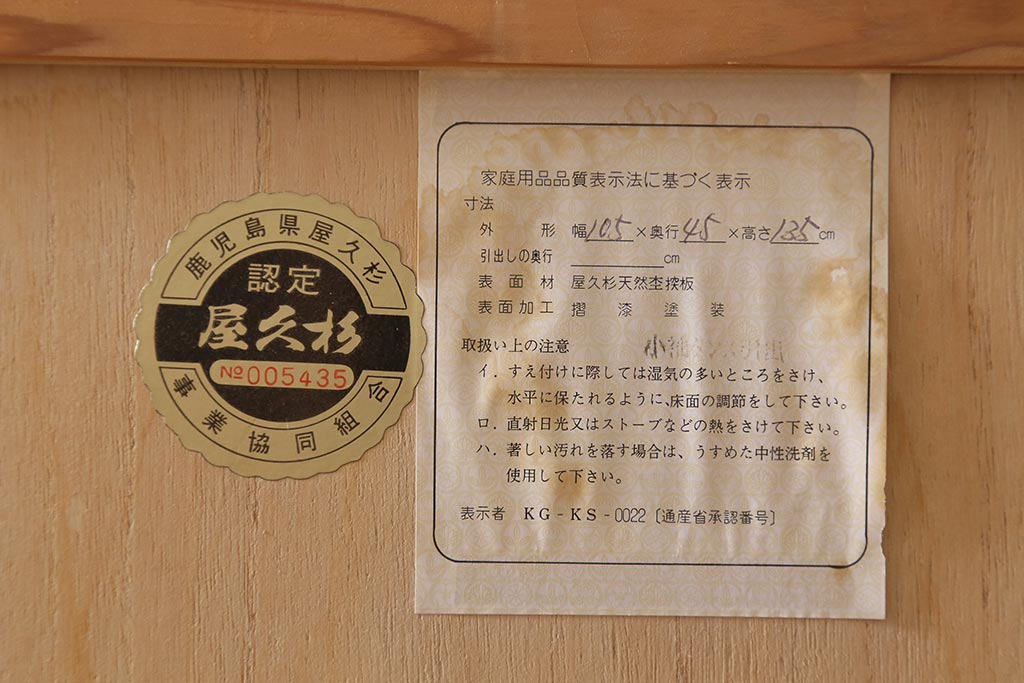 鹿児島県屋久杉
認定
屋久杉
№005435
事業協同組合
家庭用品品質表示法に基づく表示
寸法
外形 幅105×奥行45×高さ135cm
引出しの奥行 ________cm
表面材 屋久杉天然杢揬板
表面加工 摺漆塗装
取扱い上の注意
イ．すえ付けに際しては湿気の多いところをさけ、
水平に保たれるように、床面の調節をして下さい。
ロ．直射日光又はストーブなどの熱をさけて下さい。
ハ．著しい汚れを落す場合は、うすめた中性洗剤を
使用して下さい。
表示者 KG-KS-0022〔通産省承認番号〕